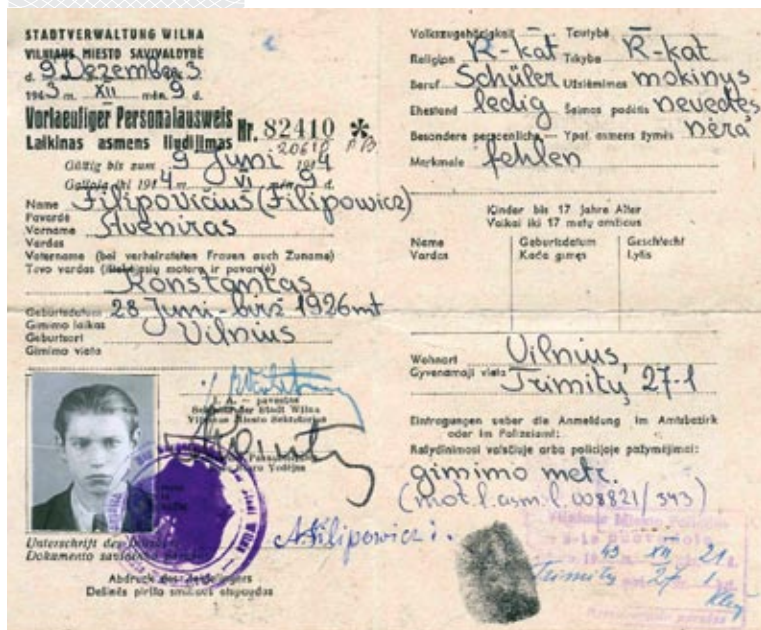 STADTVERWALTUNG WILNA
VILNIAUS MIESTO SAVIVALDYBĖ
d. 9 Dezember 3
1943 m. XII mėn. 9 d.
Vorlaeufiger Personalausweis
Laikinas asmens liudijimas
Nr. 82410 *
Gültig bis zum 9 Juni 1944
Galioja iki 1944 m. VI mėn. 9 d.
Name Filipovičius (Filipowicz)
Pavardė
Vorname Aveniras
Vardas
Vatername (bei verheirateten Frauen auch Zuname)
Tevo vardas (ištekėjusių moterų ir pavardė)
Konstantas
Geburtsdatum 28 Juni-birž 1926 mt
Gimimo laikas
Geburtsort Vilnius
Gimimo vieta
J. A. — pavestas
Sekretär der Stadt Wilna
Vilniaus Miesto Sekretorius
Unterschrift des
Dokumento savininko
A. Filipowicz
Abdruck des Zeigefingers
Dešinės piršto smiliaus atspaudas
Volkszugehörigkeit — Tautybė
Religion R-kat Tikyba R-kat
Beruf Schüler Užsiėmimas mokinys
Ehestand ledig Šeimos padėtis nevedęs
Besondere persoenliche — Ypat. asmens žymės nėra
Merkmale fehlen
Kinder bis 17 Jahre Alter
Vaikai iki 17 metų amžiaus
Name Geburtsdatum Geschlecht
Vardas Kada gimęs Lytis
Wohnort Vilnius,
Gyvenamoji vieta Trimitų 27-1
Eintragungen ueber die Anmeldung im Amtsbezirk
oder im Polizeiamt:
Įrašydinimosi valsčiuje arba policijoje pažymėjimai:
gimimo metr.
(mot. l. asm. l. 008821/343)
43 XII 21
Trimitų 27 1